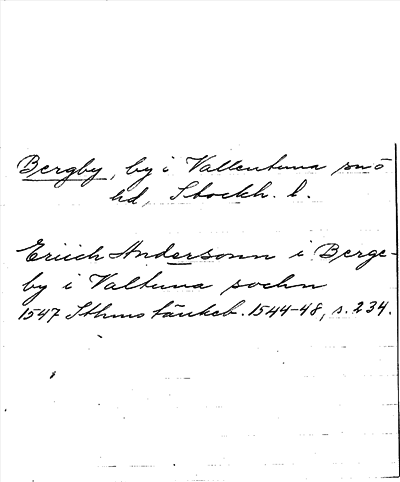 Bergby, by i Vallentuna snö
hd, Stockh. l.
Eriich Andersonn i Berge-
by i Valtuna sochn
1547 Sthms tänkeb. 1544-48, s. 234.